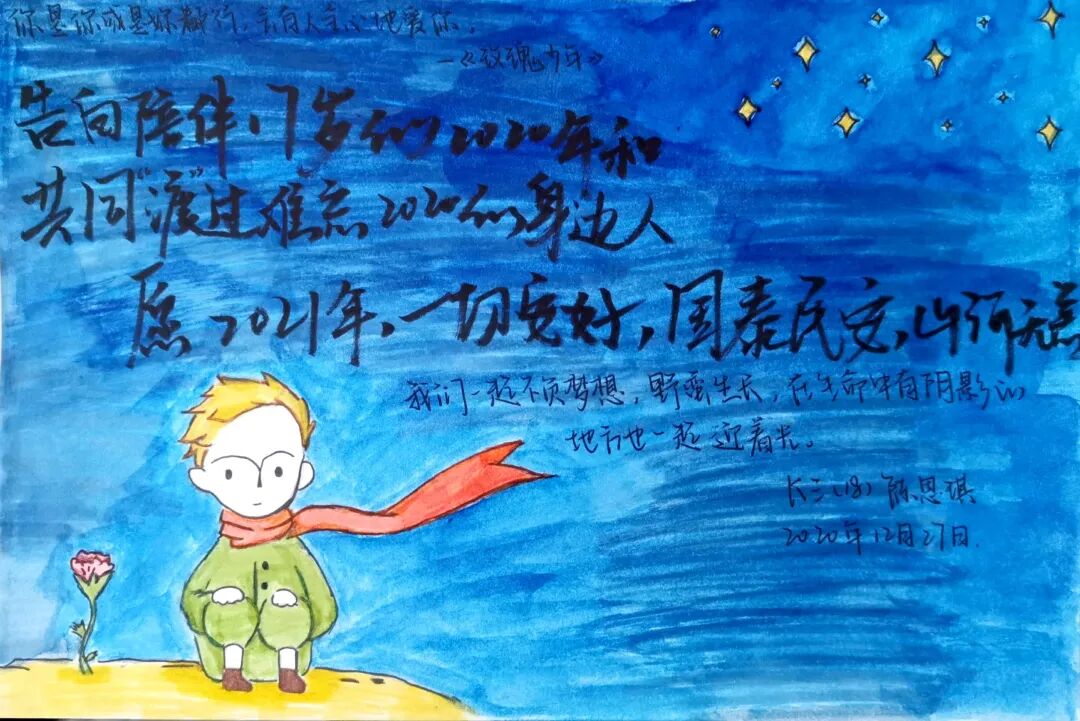 你是你或是妳都行，会有人全心地爱你。
—《玫瑰少年》
告白陪伴17岁的2020年和
共同“渡”过难忘2020的身边人
愿2021年，一切安好，国泰民安，山河无恙
我们一起不负梦想，野蛮生长，在生命中有阴影的
地方也一起迎着光。
三（18） 思琪
2020年12月27日.